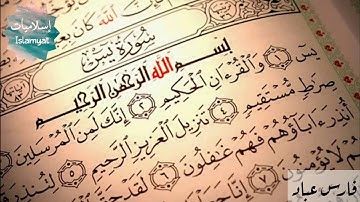 إسلاميات
Islamyat
الله كان
سورة يس
بسم الله الرحمن الرحيم
يسٓ ١ وَٱلْقُرْءَانِ ٱلْحَكِيمِ ٢ إِنَّكَ لَمِنَ ٱلْمُرْسَلِينَ
صِرَٰطٍ مُّسْتَقِيمٍ ٤ تَنزِيلَ ٱلْعَزِيزِ ٱلرَّحِيمِ ٥ لِتُنذِرَ
أُنذِرَ ءَابَآؤُهُمْ فَهُمْ غَٰفِلُونَ ٦ لَقَدْ
لَا يُؤْمِنُونَ ٧ إِنَّا
فارس عباد